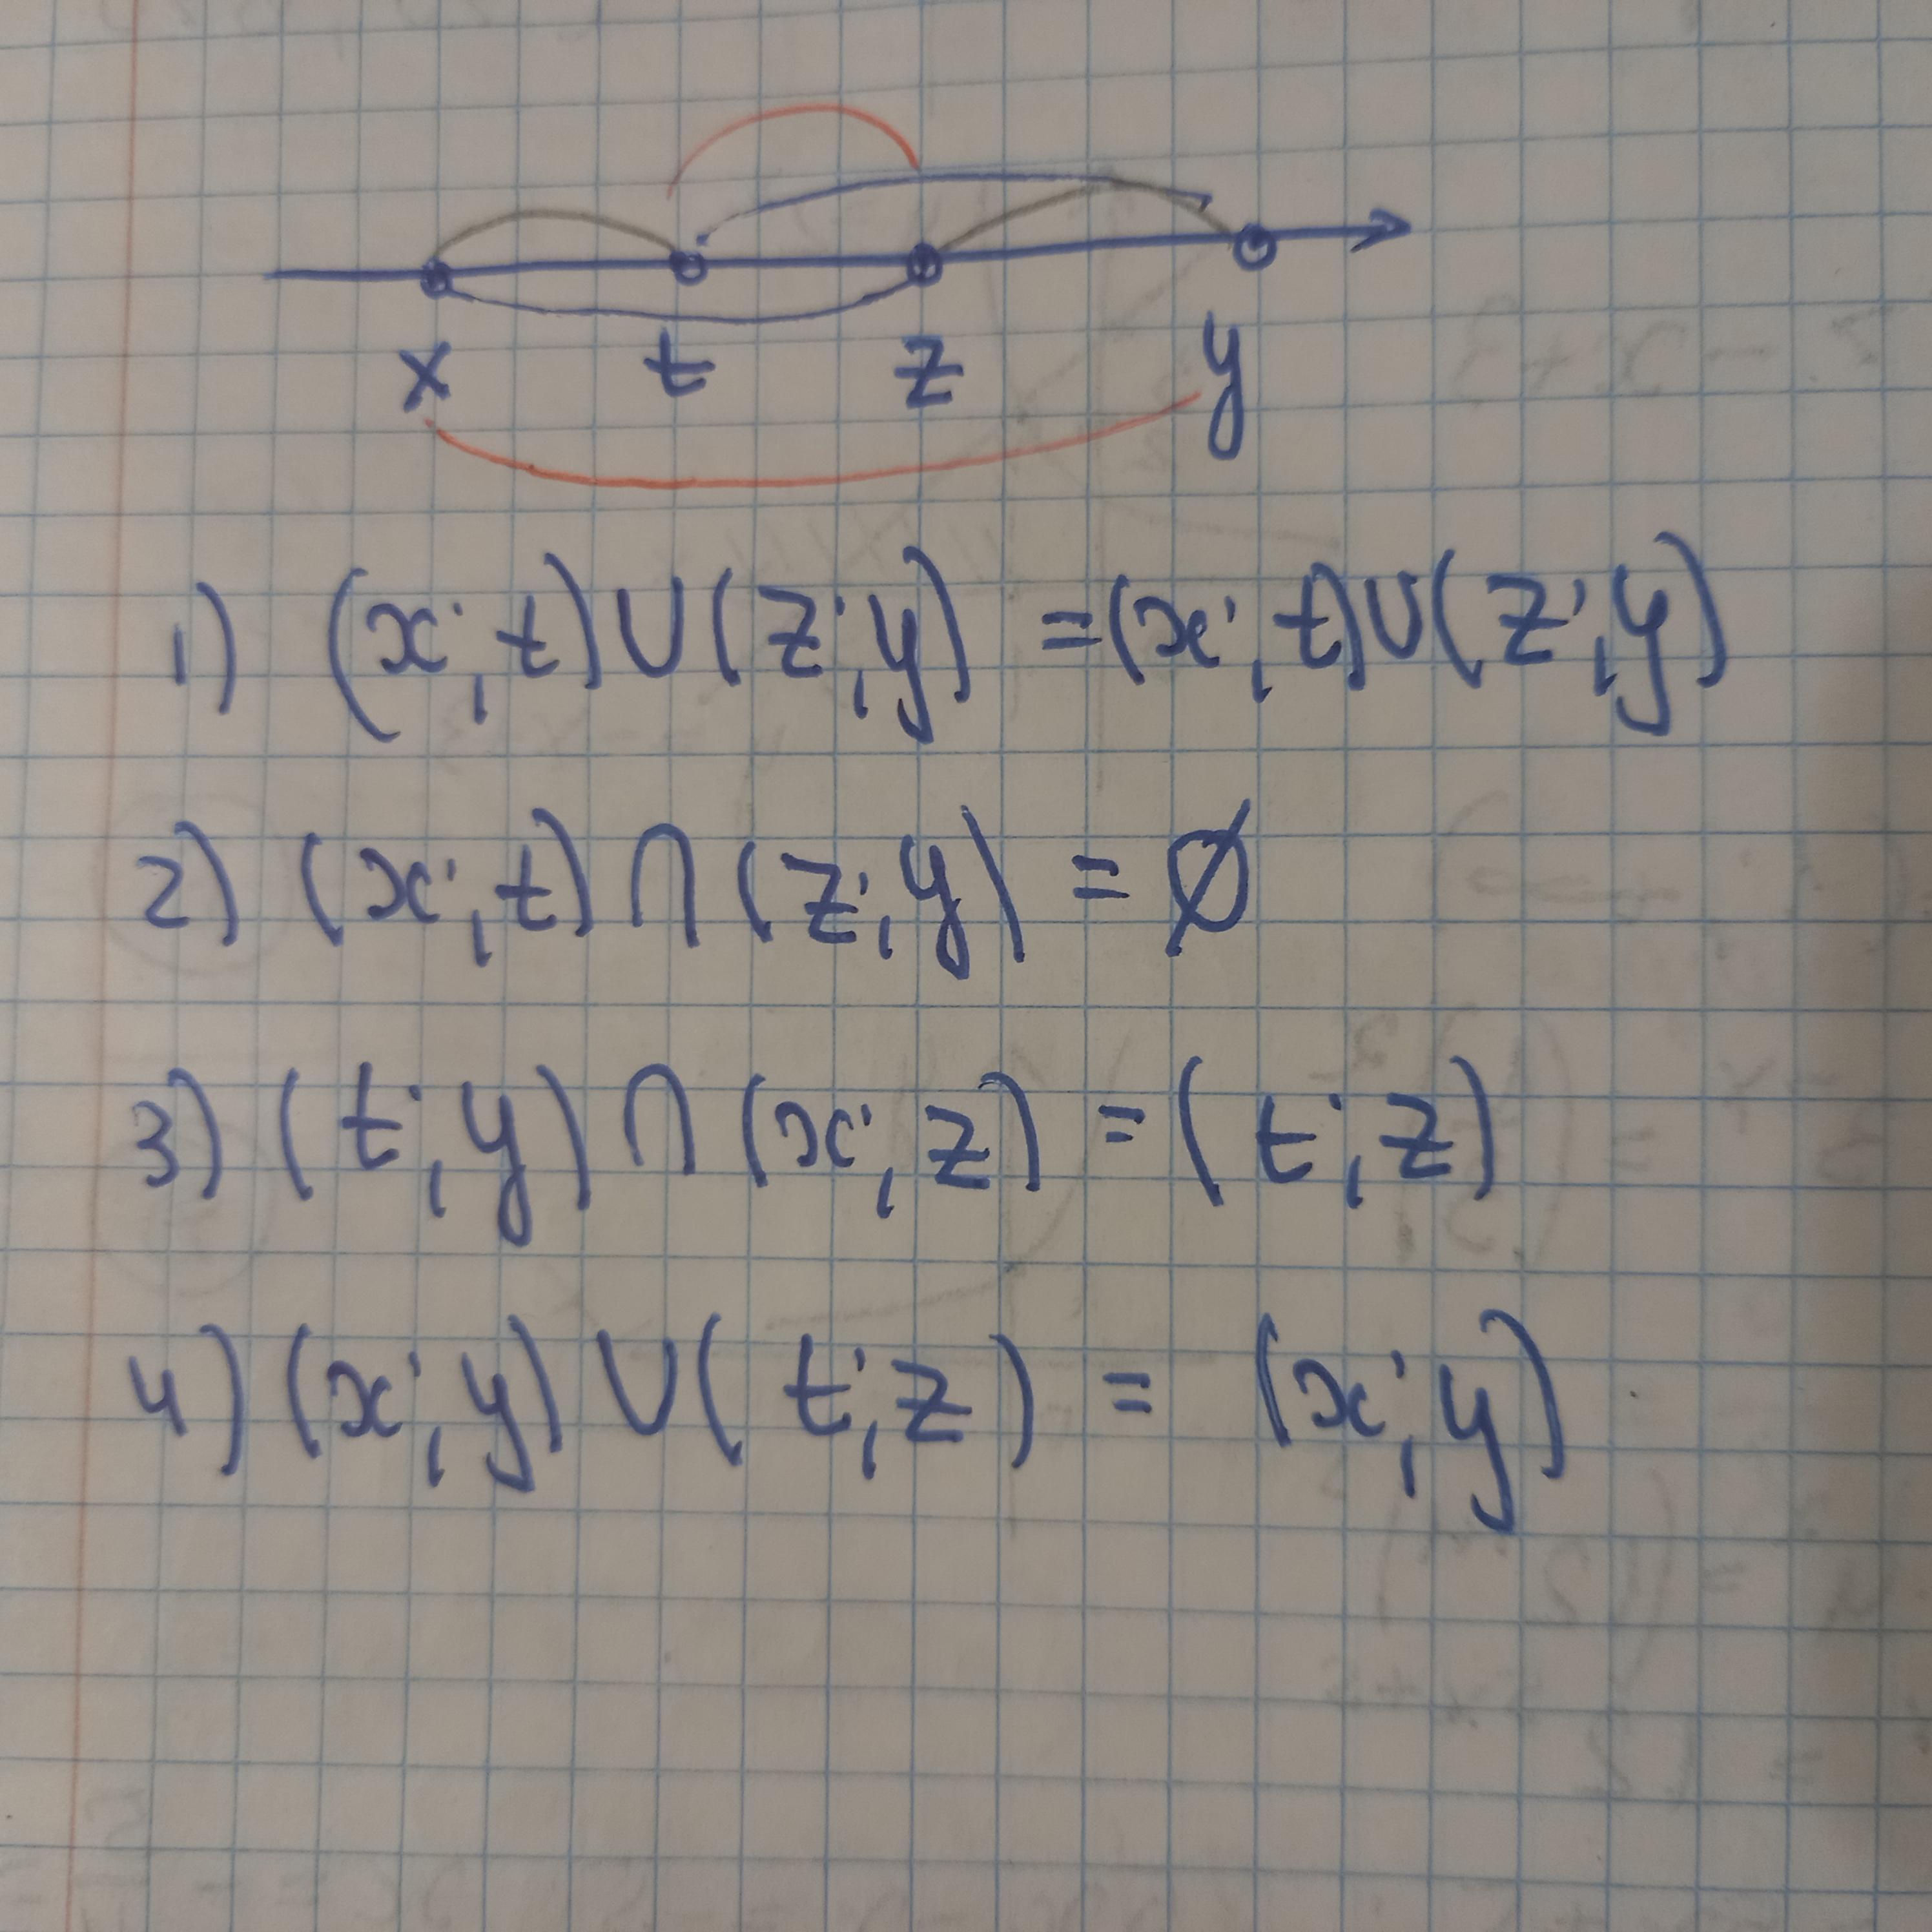 x t z y
1) (x; t) ∪ (z; y) = (x; t) ∪ (z; y)
2) (x; t) ∩ (z; y) = ∅
3) (t; y) ∩ (x; z) = (t; z)
4) (x; y) ∪ (t; z) = (x; y)